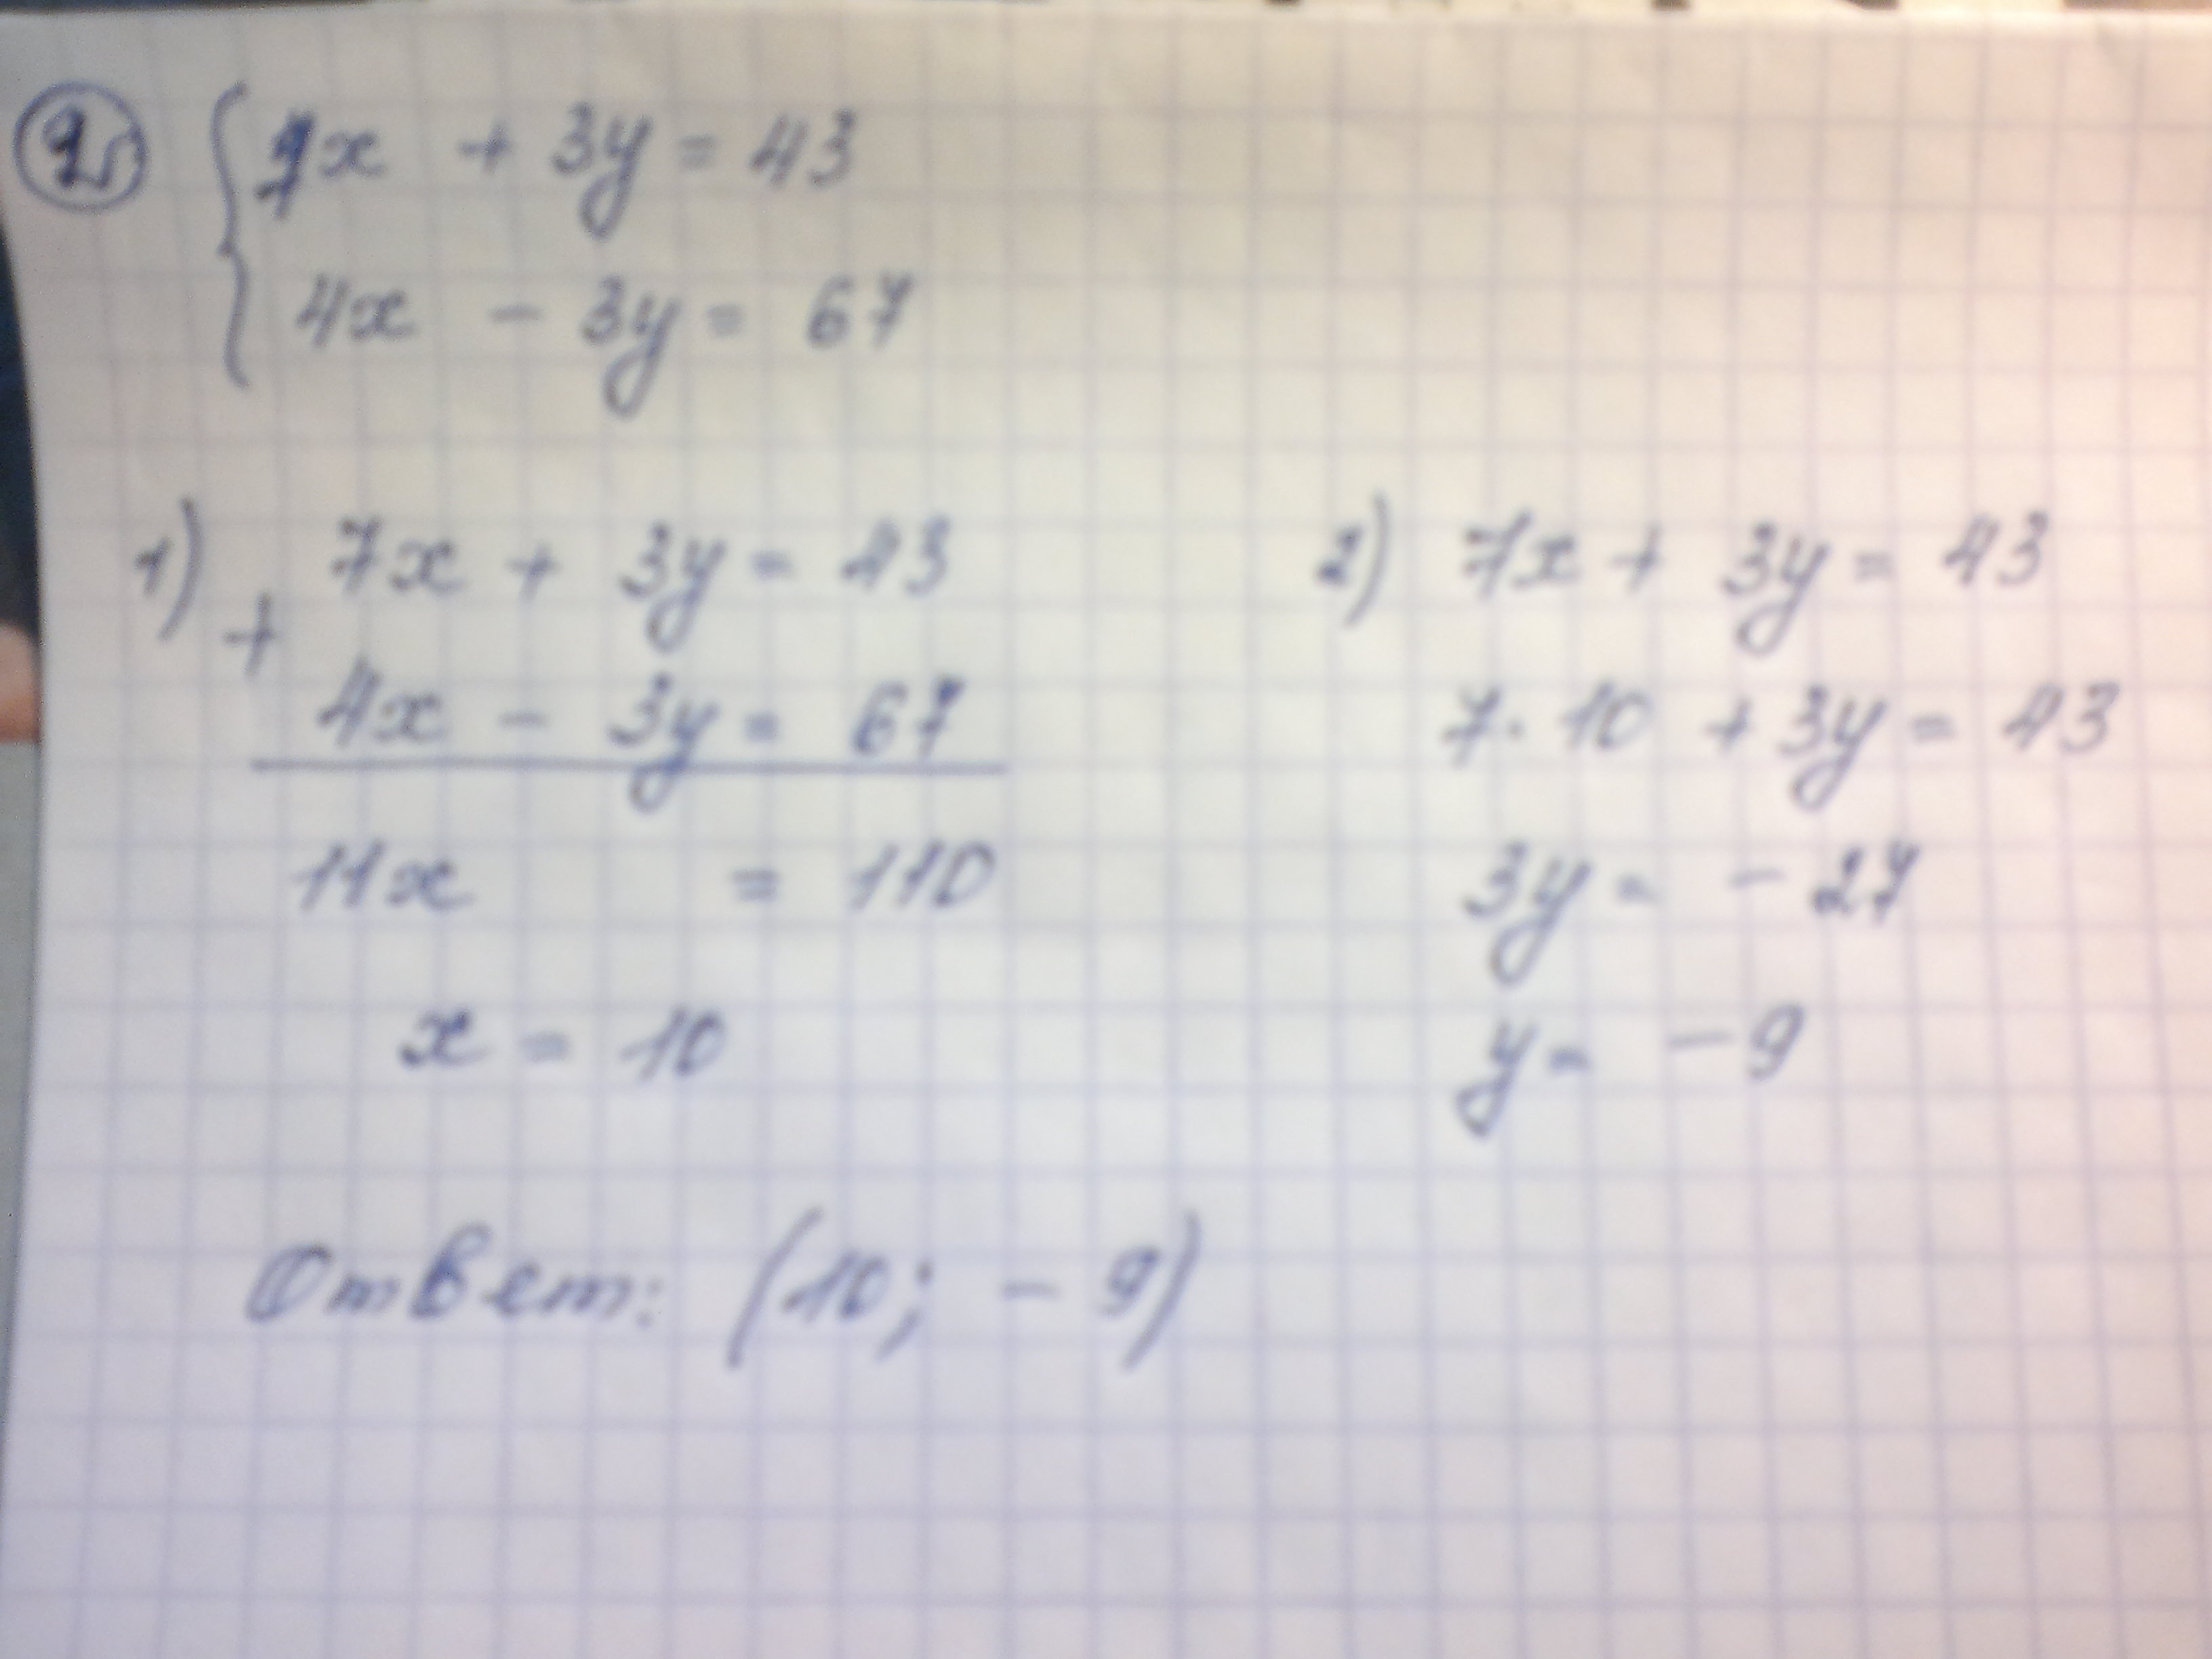 2 7x + 3y = 43
4x - 3y = 67
1) 7x + 3y = 43
+
4x - 3y = 67
11x = 110
x = 10
2) 7x + 3y = 43
7 · 10 + 3y = 43
3y = - 27
y = - 9
Ответ: (10; - 9)